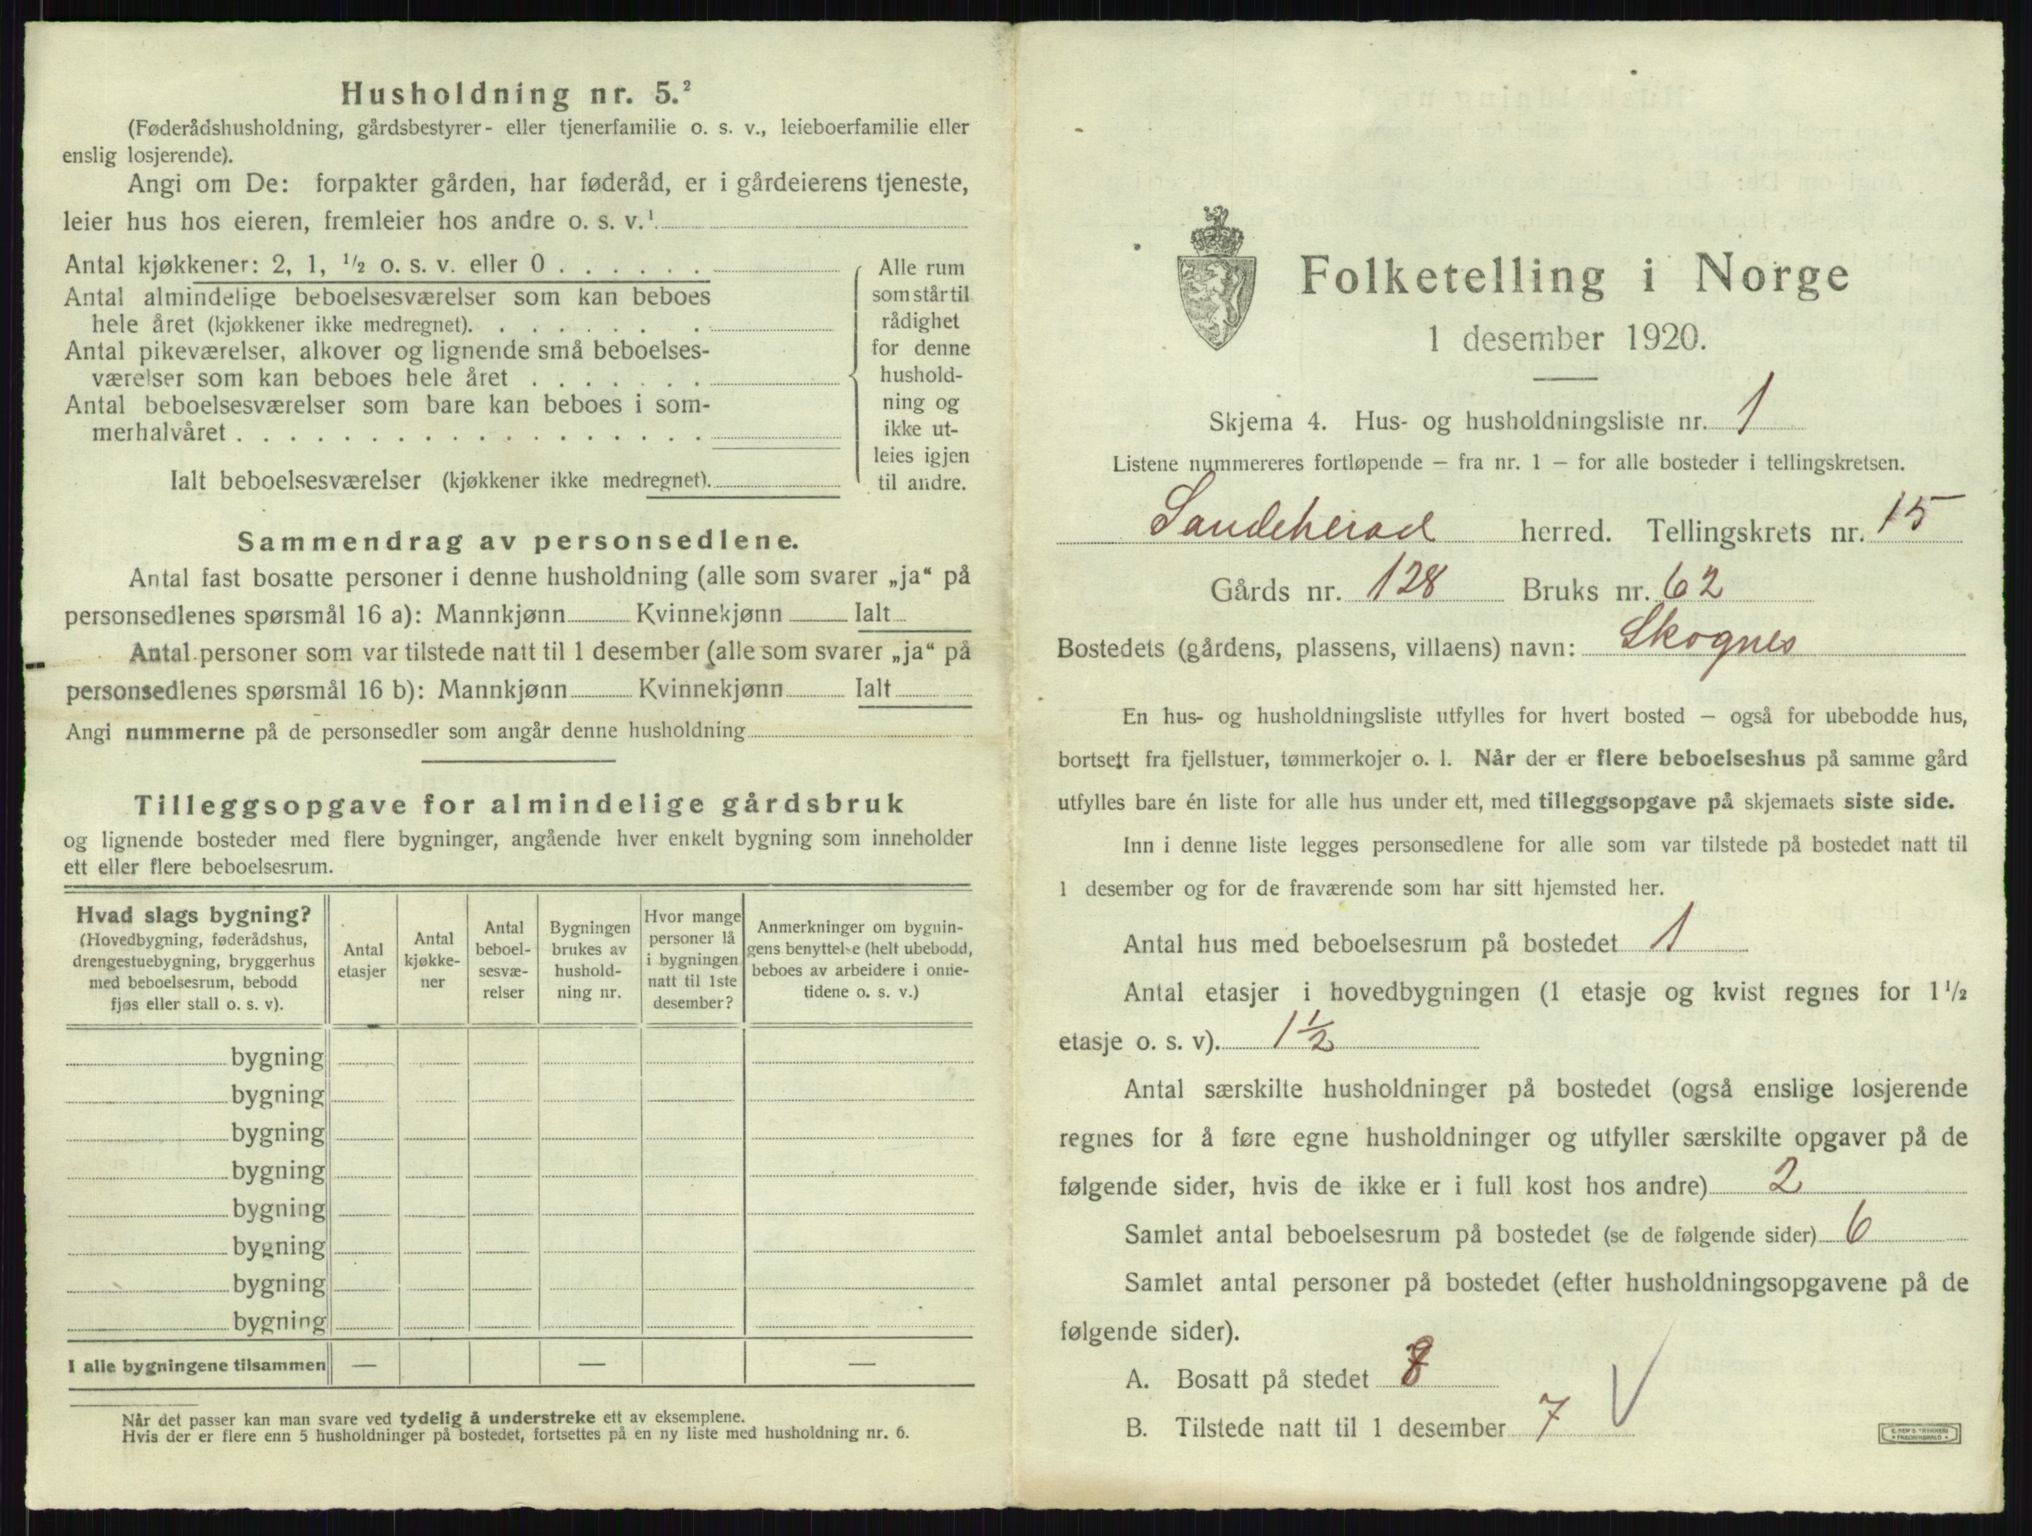 Husholdning nr. 5.²
(Føderådshusholdning, gårdsbestyrer- eller tjenerfamilie o. s. v., leieboerfamilie eller
enslig losjerende).
Angi om De: forpakter gården, har føderåd, er i gårdeierens tjeneste,
leier hus hos eieren, fremleier hos andre o. s. v.¹
Antal kjøkkener: 2, 1, ½ o. s. v. eller 0 . . . . . .
Antal almindelige beboelsesværelser som kan beboes
hele året (kjøkkener ikke medregnet). . . . . . . .
Antal pikeværelser, alkover og lignende små beboelses-
værelser som kan beboes hele året . . . . . . .
Antal beboelsesværelser som bare kan beboes i som-
merhalvåret . . . . . . . . . . . . . . . . . .
Ialt beboelsesværelser (kjøkkener ikke medregnet).
Alle rum
som står til
rådighet
for denne
hushold-
ning og
ikke ut-
leies igjen
til andre.
Sammendrag av personsedlene.
Antal fast bosatte personer i denne husholdning (alle som svarer „ja“ på
personsedlenes spørsmål 16 a): Mannkjønn Kvinnekjønn Ialt
Antal personer som var tilstede natt til 1 desember (alle som svarer „ja“ på
personsedlenes spørsmål 16 b): Mannkjønn Kvinnekjønn Ialt
Angi nummerne på de personsedler som angår denne husholdning
Tilleggsopgave for almindelige gårdsbruk
og lignende bosteder med flere bygninger, angående hver enkelt bygning som inneholder
ett eller flere beboelsesrum.
Hvad slags bygning?
(Hovedbygning, føderådshus,
drengestuebygning, bryggerhus
med beboelsesrum, bebodd
fjøs eller stall o. s. v).
Antal
etasjer
Antal
kjøkke-
ner
Antal
beboel-
sesvæ-
relser
Bygningen
brukes av
hushold-
ning nr.
Hvor mange
personer lå
i bygningen
natt til 1ste
desember?
Anmerkninger om bygnin-
gens benyttelse (helt ubebodd,
beboes av arbeidere i onne-
tidene o. s. v.)
bygning
bygning
bygning
bygning
bygning
bygning
bygning
bygning
I alle bygningene tilsammen — — —
Når det passer kan man svare ved tydelig å understreke ett av eksemplene.
Hvis der er flere enn 5 husholdninger på bostedet, fortsettes på en ny liste med husholdning nr. 6.
Folketelling i Norge
1 desember 1920.
Skjema 4. Hus- og husholdningsliste nr. 1
Listene nummereres fortløpende – fra nr. 1 – for alle bosteder i tellingskretsen.
Sandeherad herred. Tellingskrets nr. 15
Gårds nr. 128 Bruks nr. 62
Bostedets (gårdens, plassens, villaens) navn: Skognes
En hus- og husholdningsliste utfylles for hvert bosted – også for ubebodde hus,
bortsett fra fjellstuer, tømmerkojer o. l. Når der er flere beboelseshus på samme gård
utfylles bare én liste for alle hus under ett, med tilleggsopgave på skjemaets siste side.
Inn i denne liste legges personsedlene for alle som var tilstede på bostedet natt til
1 desember og for de fraværende som har sitt hjemsted her.
Antal hus med beboelsesrum på bostedet 1
Antal etasjer i hovedbygningen (1 etasje og kvist regnes for 1½
etasje o. s. v). 1½
Antal særskilte husholdninger på bostedet (også enslige losjerende
regnes for å føre egne husholdninger og utfyller særskilte opgaver på de
følgende sider, hvis de ikke er i full kost hos andre) 2
Samlet antal beboelsesrum på bostedet (se de følgende sider) 6
Samlet antal personer på bostedet (efter husholdningsopgavene på de
følgende sider).
A. Bosatt på stedet
B. Tilstede natt til 1 desember 7